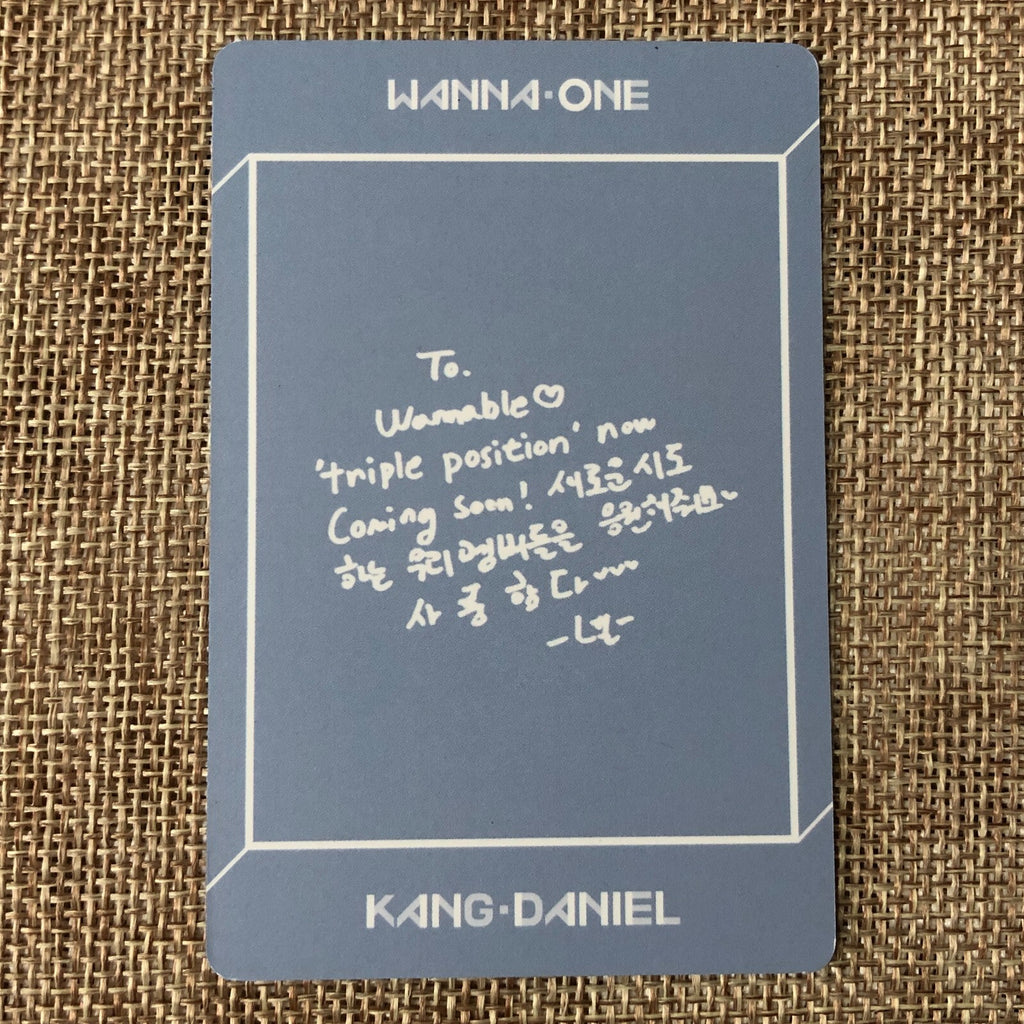 WANNA·ONE
To.
Wannable♡
'triple position' now
Coming soon! 새로운 시도
하는 우리 멤버들을 응원해주세요
사 릉 함 다~~~
-녤-
KANG·DANIEL